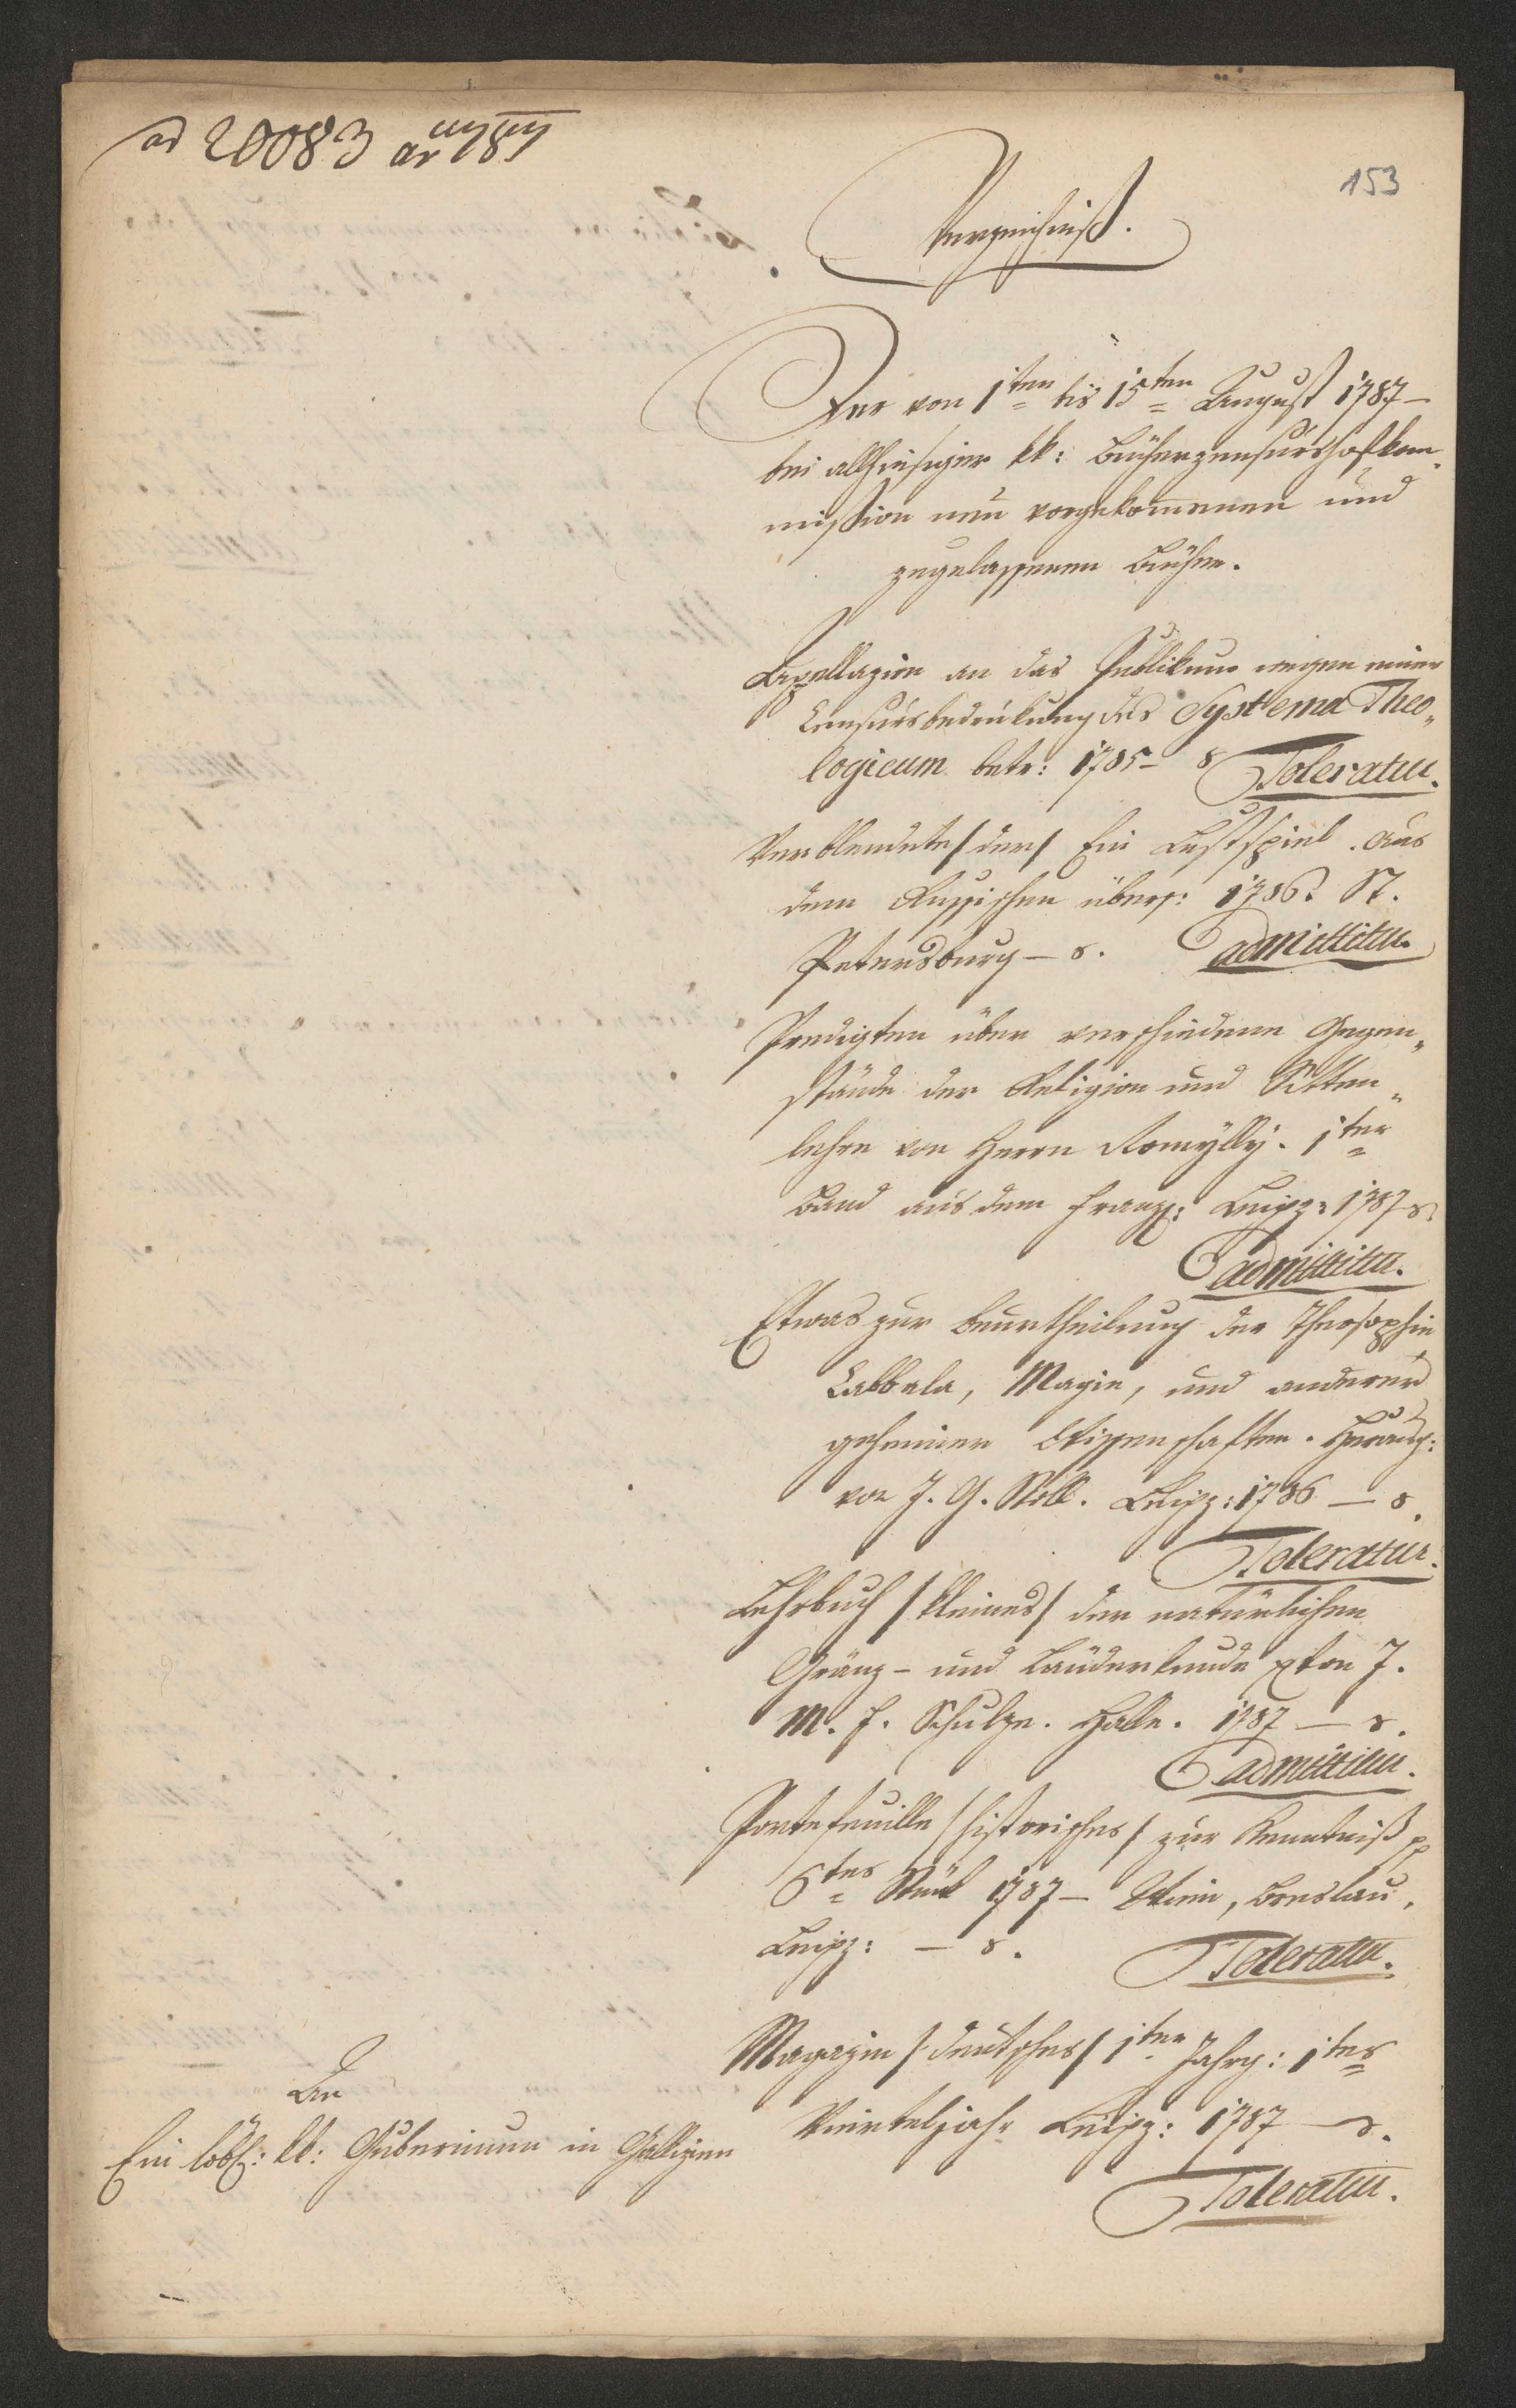 ad 20083 ar 787
153
Verzeichniß.
Der von 1ten bis 15ten August 1787 –
bei allhiesiger kk: Bücherzensurshofkom„
mission neu vorgekommenen und
zugelassenen Bücher.
Appellazion an das Publikum wegen einer
Censursbedrückung des Systema Theo„
logicum betr: 1785 – 8 Toleratur.
Verblendete /der/ Ein Lustspiel. aus
dem Russischen übers: 1786. St.
Petersburg – 8. admittitur.
Predigten über verschiedene Gegen„
stände der Religion und Sitten„
lehre von Herrn Romylly. 1ter
Band aus dem Franz: Leipz: 1787 8.
admittitur.
Etwas zur Beurtheilung der Theosophie
Cabbala, Magie, und anderer
geheimer Wissenschaften. Herausg:
von J. G. Stoll. Leipz: 1786 – 8.
Toleratur.
Lehrbuch /kleines/ der natürlichen
Gränz – und Länderkunde von J.
M. F. Schulze. Halle. 1787 – 8.
admittitur.
Portefeuille /historisches/ zur Kenntniß pp
6tes Stück 1787 – Wien, Breslau,
Leipz: – 8. Toleratur.
Magazin /deutsches/ 1ter Jahrg: 1tes
Vierteljahr Leipz: 1787 – 8.
Toleratur.
An
Ein löbl: kk: Gubernium in Gallizien